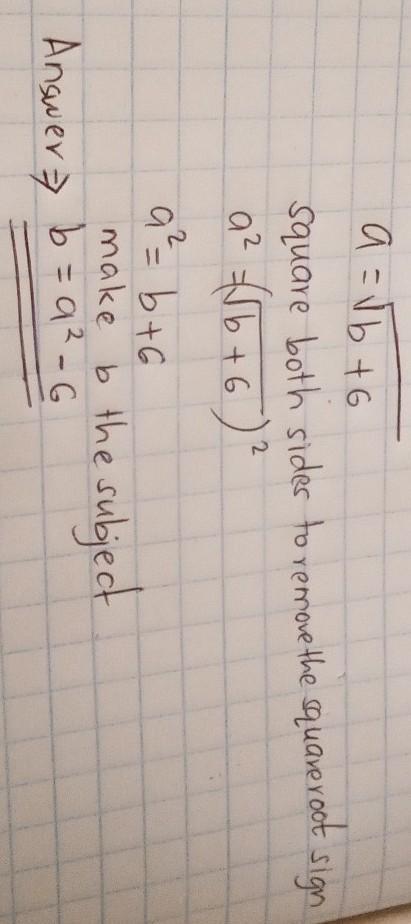 a = √b + 6
square both sides to remove the squareroot sign
a² = (√b + 6)²
a² = b + 6
make b the subject
Answer ⇒ b = a² - 6